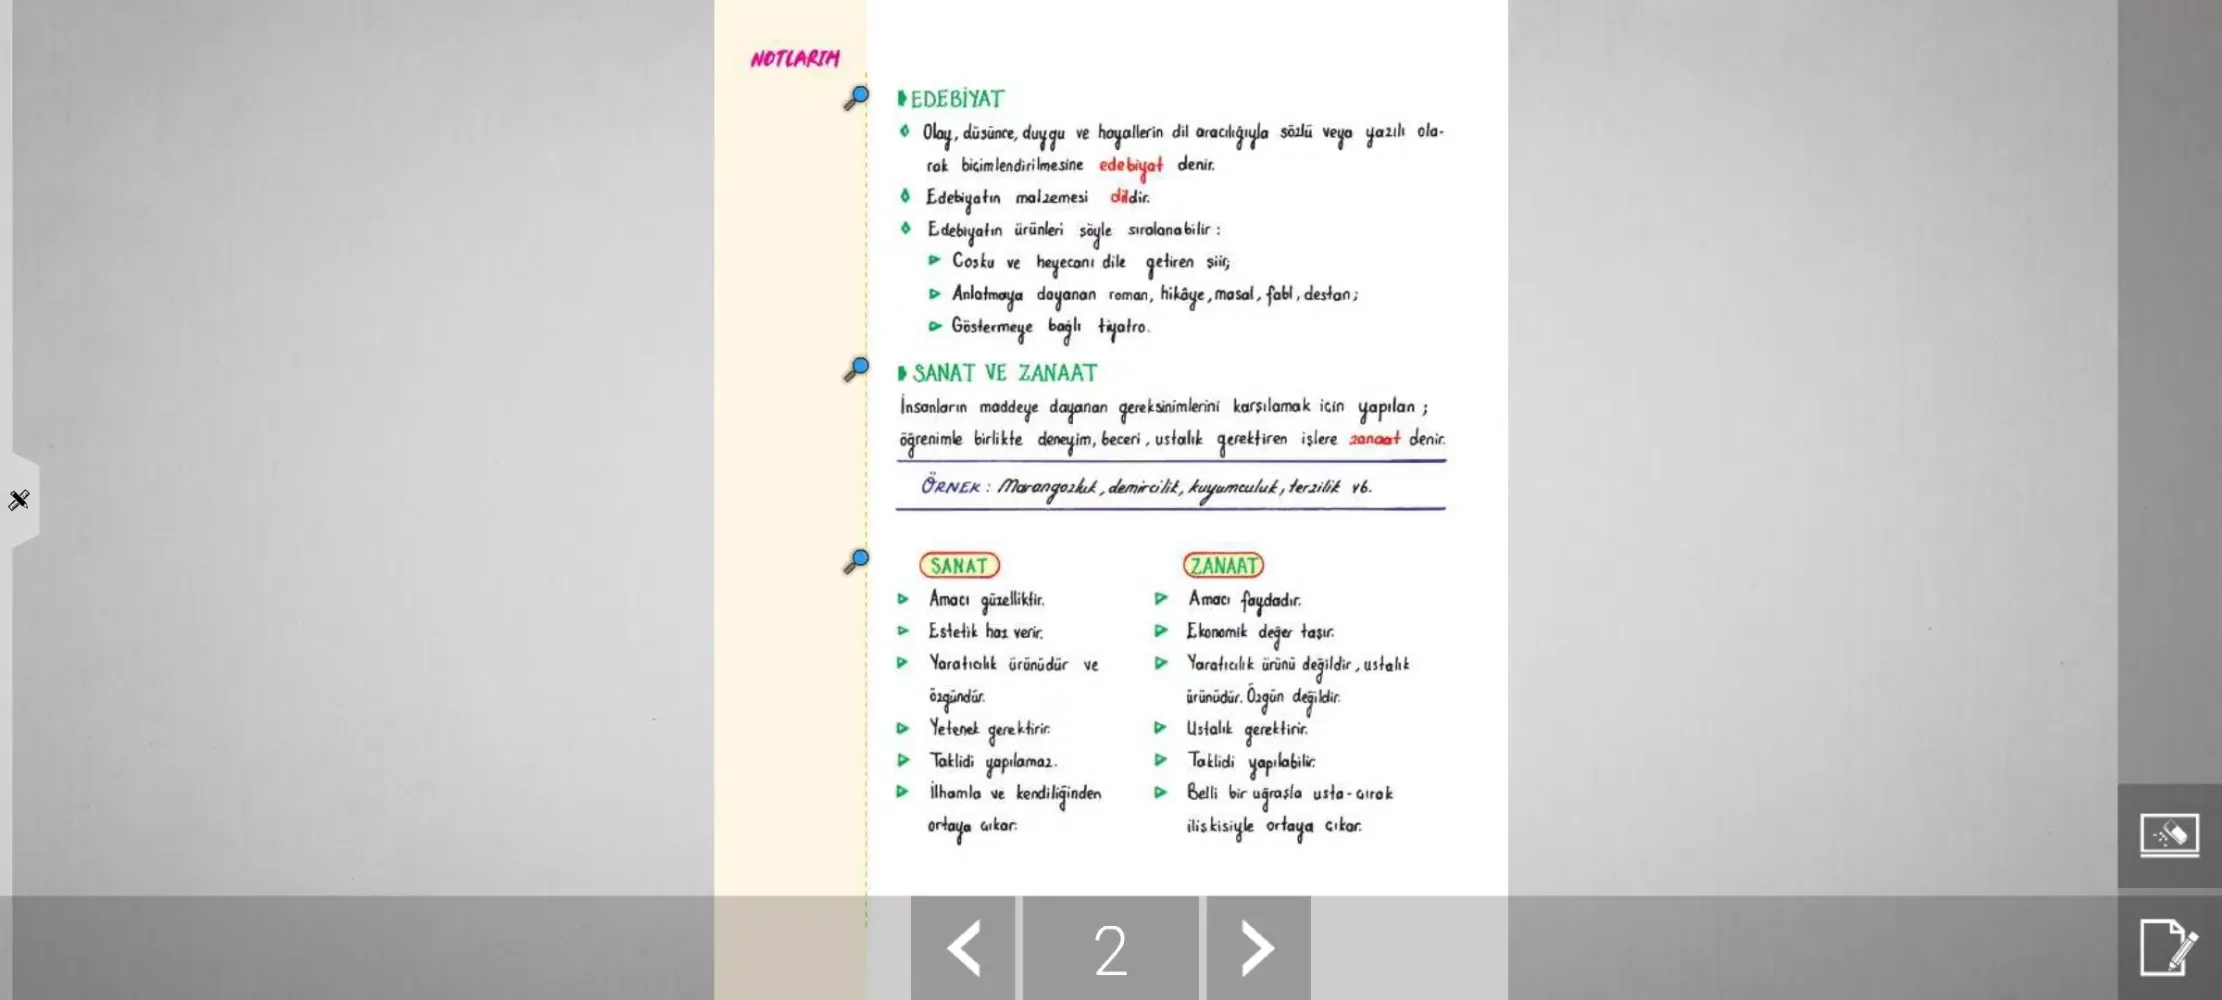 NOTLARIM
EDEBİYAT
Olay, düşünce, duygu ve hayallerin dil aracılığıyla sözlü veya yazılı ola-
rak biçimlendirilmesine edebiyat denir.
Edebiyatın malzemesi dildir.
Edebiyatın ürünleri şöyle sıralanabilir :
Coşku ve heyecanı dile getiren şiir;
Anlatmaya dayanan roman, hikâye, masal, fabl, destan;
Göstermeye bağlı tiyatro.
SANAT VE ZANAAT
İnsanların maddeye dayanan gereksinimlerini karşılamak için yapılan ;
öğrenimle birlikte deneyim, beceri, ustalık gerektiren işlere zanaat denir.
ÖRNEK : Marangozluk, demircilik, kuyumculuk, terzilik vb.
SANAT
Amacı güzelliktir.
Estetik haz verir.
Yaratıcılık ürünüdür ve
özgündür.
Yetenek gerektirir.
Taklidi yapılamaz.
İlhamla ve kendiliğinden
ortaya çıkar.
ZANAAT
Amacı faydadır.
Ekonomik değer taşır.
Yaratıcılık ürünü değildir, ustalık
ürünüdür. Özgün değildir.
Ustalık gerektirir.
Taklidi yapılabilir.
Belli bir uğraşla usta-çırak
ilişkisiyle ortaya çıkar.
2